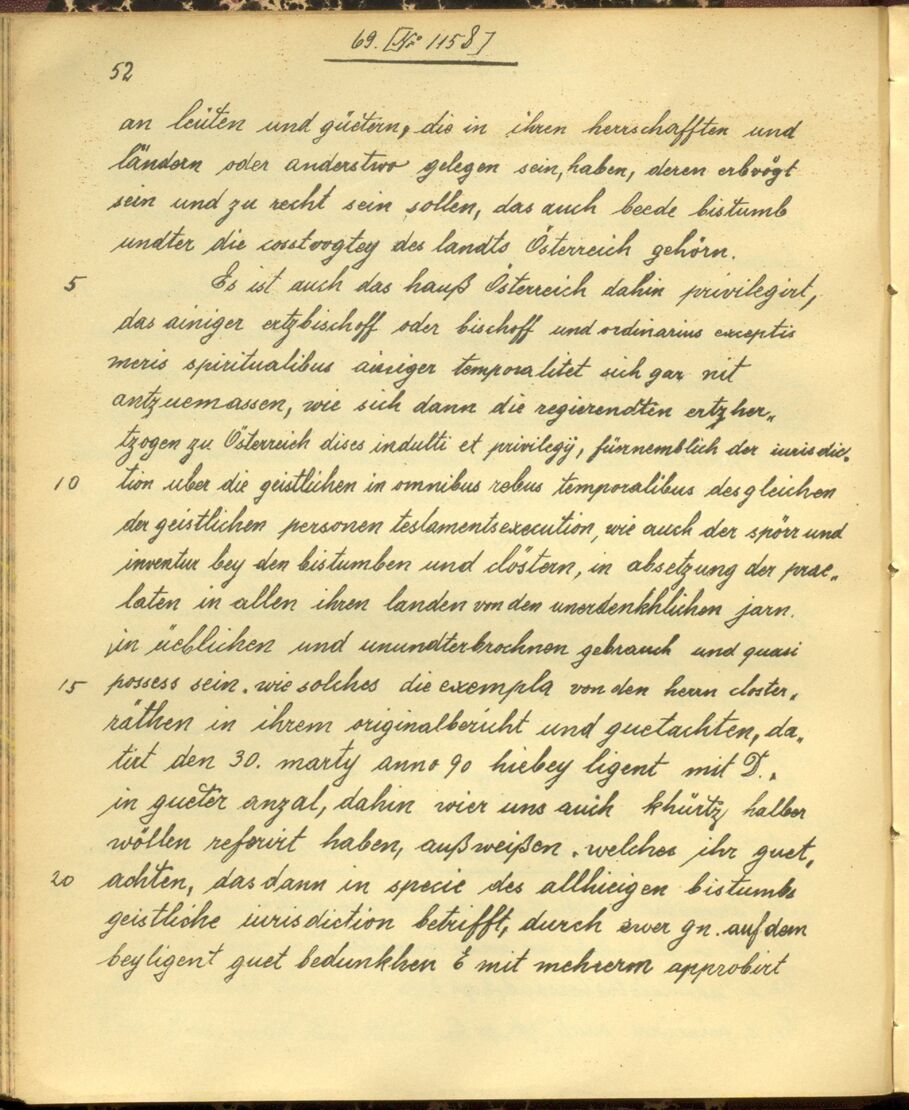 69. [No 1158]
52
an leüten und güetern, die in ihren herrschafften und
ländern oder anderstwo gelegen sein, haben, deren erbvögt
sein und zu recht sein sollen, das auch beede bistumb
undter die casstvogtey des landts Österreich gehörn.
5 Es ist auch das hauß Österreich dahin privilegirt,
das ainiger ertzbischoff oder bischoff und ordinarius exceptis
meris spiritualibus ainiger temporalitet sich gar nit
antzuemassen, wie sich dann die regierendten ertzher„
tzogen zu Österreich dises indulti et privilegÿ, fürnemblich der iurisdic„
10 tion uber die geistlichen in omnibus rebus temporalibus desgleichen
der geistlichen personen testamentsexecution, wie auch der spörr und
inventur bey den bistumben und clöstern, in absetzung der prae„
laten in allen ihren landen von den unerdenkhlichen jarn.
in üeblichen und unundterbrochnen gebrauch und quasi
15 possess sein. wie solches die exempla von den herrn closter„
räthen in ihrem originalbericht und guetachten, da„
tirt den 30. marty anno 90 hiebey ligent mit D.,
in gueter anzal, dahin wier uns auch khürtz halber
wöllen referirt haben, außweißen. welches ihr guet„
20 achten, das dann in specie des allhieigen bistumbs
geistliche iurisdiction betrifft, durch ewer gn. auf dem
beyligent guet bedunkhen E mit mehrerm approbirt